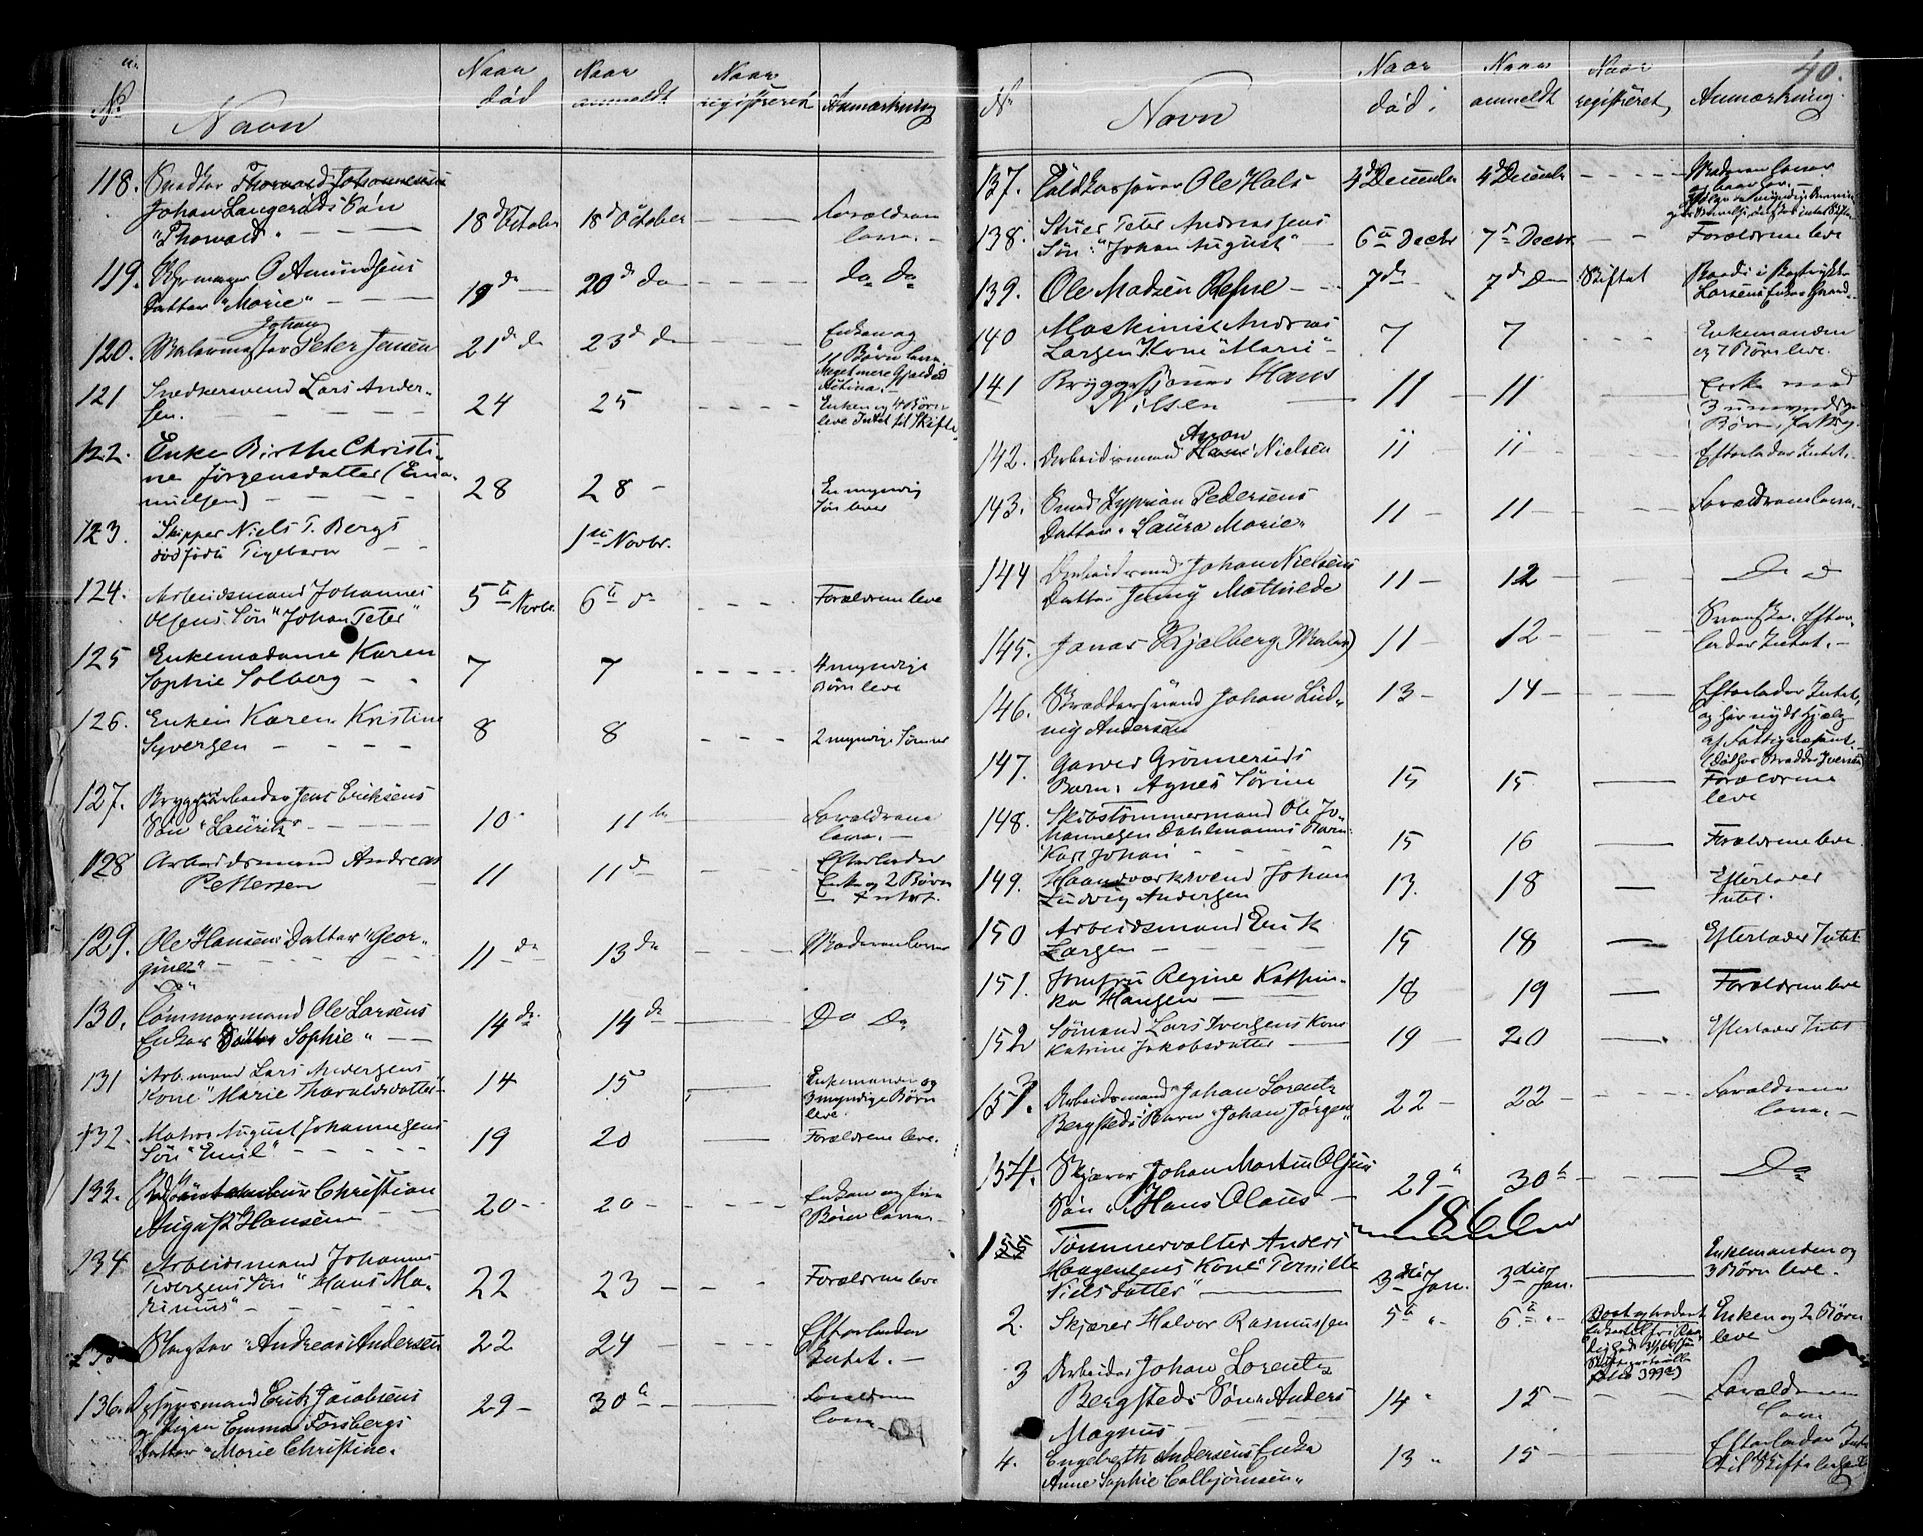 No
Navn
Naar
død
Naar
anmeldt
Naar
registreret
Anmærkning
118. Snedker Thorvald Johannesen
Johan Langeruds Søn
"Thorvald"
18d October 18d October
Forældrene
leve.
119. O. Amundsens
Datter "Marie"
19 do 20d do
do do
120. Malermester Johan Peter Jensen
21d do 23d do
Enken og
11 Børn leve.
121 Snedkersvend Lars Ander-
sen.
24 25
Enken og 4 Børn
leve Intet til Skifte
122. Enke Birthe Christi-
ne Jørgensdatter (Ema-
nuelsen)
28 28
En myndig
Søn lever
123. Skipper Niels T. Bergs
dødfødte Pigebarn
1ste Novbr.
124. Arbeidsmand Johannes
Olsens Søn "Johan Peter"
5te Novbr. 6te do
Forældrene leve
125 Enkemadame Karen
Sophie Solberg
7 7
4 myndige
Børn leve
126. Enken Karen Kristine
Syversen
8 8
2 myndige Sønner
127. Bryggeriarbeider Jens Eriksens
Søn "Lauritz"
10 11te
Forældrene
leve.
128 Arbeidsmand Andreas
Pettersen
11 11 do
Efterlader
Enke og 2 Børn
Intet.
129. Ole Hansens Datter "Geor-
gine"
11 do 13 do
Moderen lever
130. Tømmermand Ole Larsens
Enkes Datter Sophie"
14 do 14 do
Do Do
131 Arb.mand Lars Andersens
Kone "Marie Tharaldsdatter"
14 15
Enkemanden og
3 myndige Børn
leve.
132. Matros August Johannesens
Søn "Emil"
19 20
Forældrene leve.
133. Christian
August Hansen
20 20
Enken og
Børn leve
134 Arbeidsmand Johannes
Iversens Søn "Hans Ma-
rinius"
22 23
Forældrene leve
135 Slagter Andreas Andersen
22 24
Efterlader
Intet.
136. Jacobsens
og Pigen Emma Forsbergs
Datter "Marie Christine"
29 30te
Forældrene
leve
40.
No
Navn
Naar
død
Naar
anmeldt
Naar
registreret
Anmærkning.
137. Toldkasserer Ole Hals
4d December 4d Decembr
Moderen lever
138. Stuer Peter Andreassens
Søn: "Johan August"
6te Decbr 7de Decbr
Forældrene leve
139. Ole Madsen Refne
7 do 7d do Skiftet
Larsens
140 Maskinist Andreas
Larsen Kone "Marie"
7 7
Enkemanden
og 7 Børn leve.
141 Bryggesjouer Hans
Nilsen
11 11
Enke med
3 umyndige
Børn, fattig.
142. Arbeidsmand Aron Nielsen
11 11
Efterlader Intet.
143. Smed Zyprian Pedersens
Datter "Laura Marie"
11 11
Forældrene leve.
144 Arbeidsmand Johan Nielsens
Datter Jenny Mathilde
11 12
Do do
145. Jonas Kjølberg (Maler)
11 12
Svenske. Efter-
lader Intet.
146. Skræddersvend Johan Lud-
vig Andersen
13 14
Efterlader Intet,
og har nydt Hjælp
af Fattigvæsenet
147. Garver Grønneruds
Barn, Agnes Sørine
15 15
Forældrene
leve
148. Skibstømmermand Ole Jo-
hannesen Dahlmanns Barn
Karl Johan
15 16
Forældrene leve.
149. Haandværksvend Johan
Ludvig Andersen
13. 18
Efterlader
Intet.
150 Arbeidsmand Erik
Larsen
15 18
Efterlader Intet
151. Jomfru Regine Kathin-
ka Hansen
18 19
Forældrene leve
152 Sømand Lars Iversens Kone
Katrine Jakobsdatter
19 20
Efterlader Intet
153. Arbeidsmand Johan Lorentz
Bergsteds Barn "Johan Jørgen"
22 22
Forældrene
leve.
154. Skjærer Johan Martin Olsens
Søn "Hans Olaus"
29te 30te
Do
1866
155 Tømmervalter Anders
Haagensens Kone "Pernille
Nielsdatter"
3die Jan. 3die Jan.
Enkemanden og
3 Børn leve.
2. Skjærer Halvor Rasmussen
5te " 6te "
Enken og 2 Børn
leve
3 Arbeider Johan Lorentz
Bergsteds Søn "Anders
Magnus
14 " 15
Forældrene
leve
4. Engebreth Andersens Enke
Anne Sophie Colbjørnsen"
13 " 15
Efterlader Intet
til Skifte